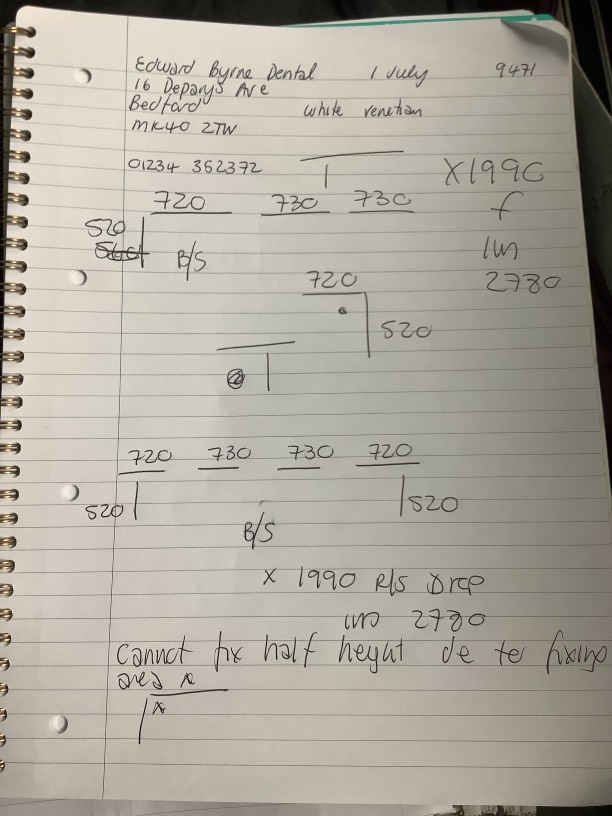 Edward Byrne Dental 1 July 9471
16 Deparys Ave
Bedford white venetian
MK40 2TW
01234 352372 X1990
720 730 730 f
520 B/S 1m
720 2780
520
720 730 730 720
520 520
B/S
x 1990 R/S Drop
2780
Cannot fix half heyut de to fixing
area x
x